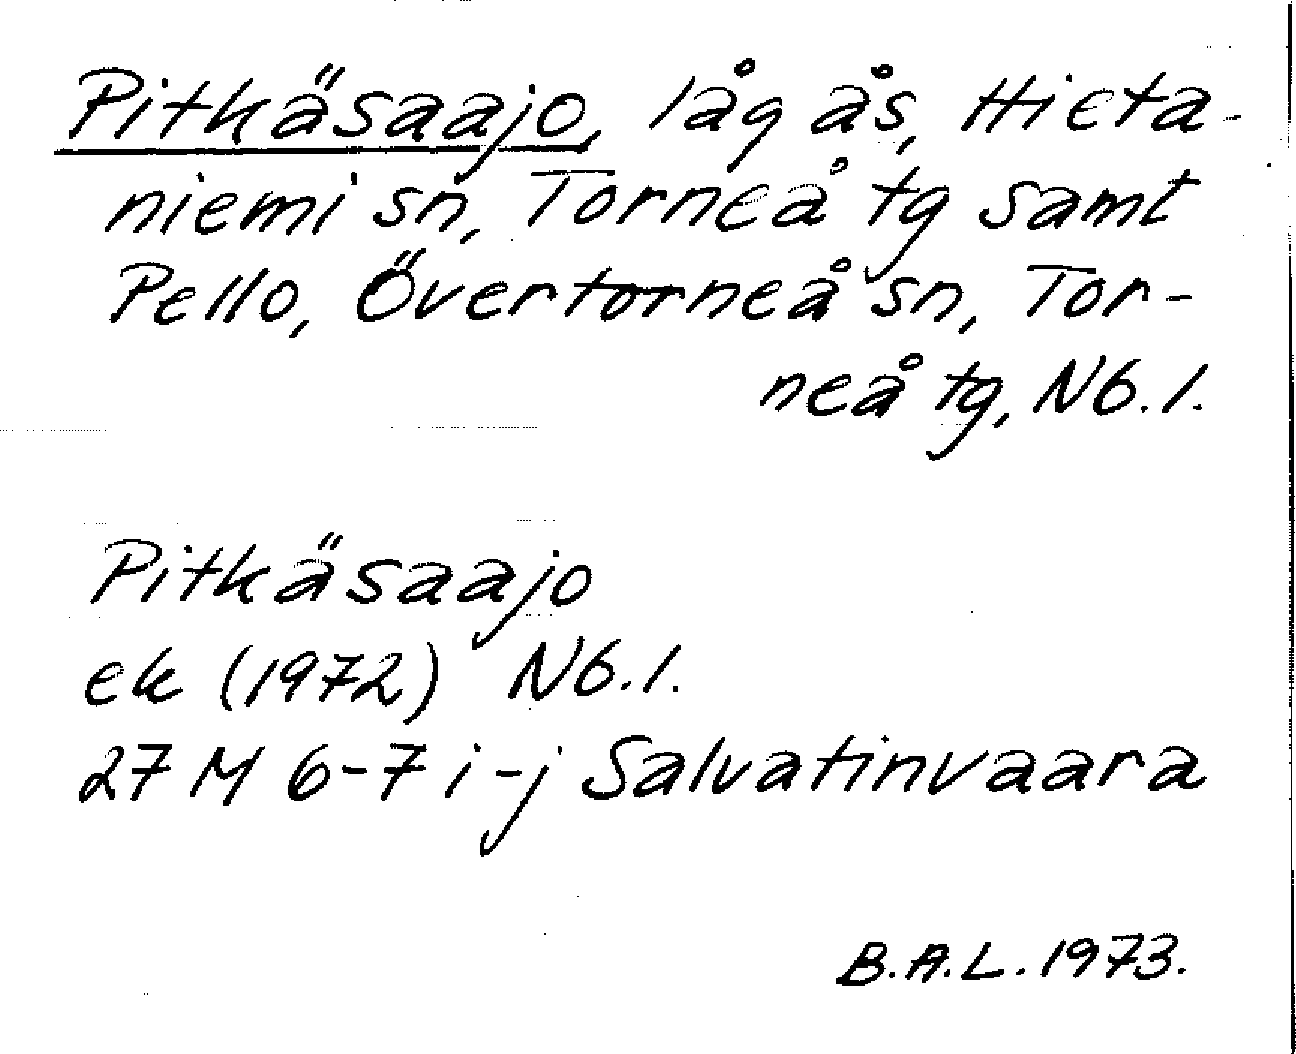 Pitkäsaajo, låg ås, Hieta-
niemi sn, Torneå tg samt
Pello, Övertorneå sn, Tor-
neå tg, Nb.l.
Pitkäsaajo
ek (1972) Nb.l.
27 M 6-7 i-j Salvatinvaara
B.A.L. 1973.